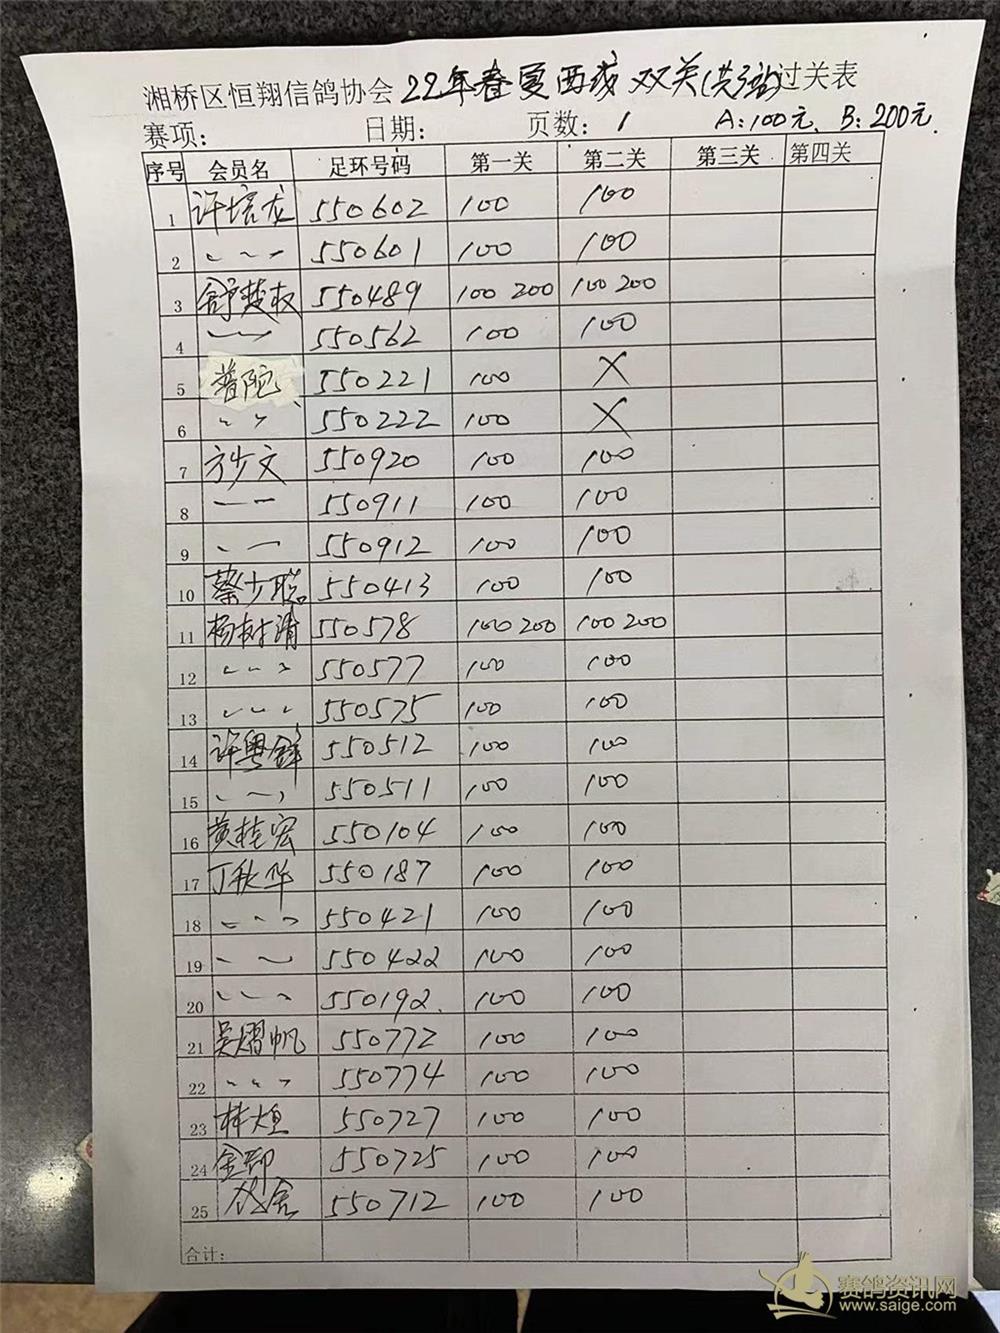 湘桥区恒翔信鸽协会22年春夏西线双关(共3站)过关表
赛项: 日期: 页数: 1 A:100元、B:200元.
序号 会员名 足环号码 第一关 第二关 第三关 第四关
1 许培龙 550602 100 100
2 〃 550601 100 100
3 舒楚权 550489 100 200 100 200
4 〃 550562 100 100
5 普陀 550221 100 X
6 〃 550222 100 X
7 方少文 550920 100 100
8 〃 550911 100 100
9 〃 550912 100 100
10 蔡少聪 550413 100 100
11 杨树清 550578 100 200 100 200
12 〃 550577 100 100
13 〃 550575 100 100
14 许粤锋 550512 100 100
15 〃 550511 100 100
16 黄桂宏 550104 100 100
17 丁秋华 550187 100 100
18 〃 550421 100 100
19 〃 550422 100 100
20 〃 550192. 100 100
21 吴熠帆 550772 100 100
22 〃 550774 100 100
23 林煌 550727 100 100
24 550725 100 100
25 550712 100 100
合计:
赛鸽资讯网
www.saige.com